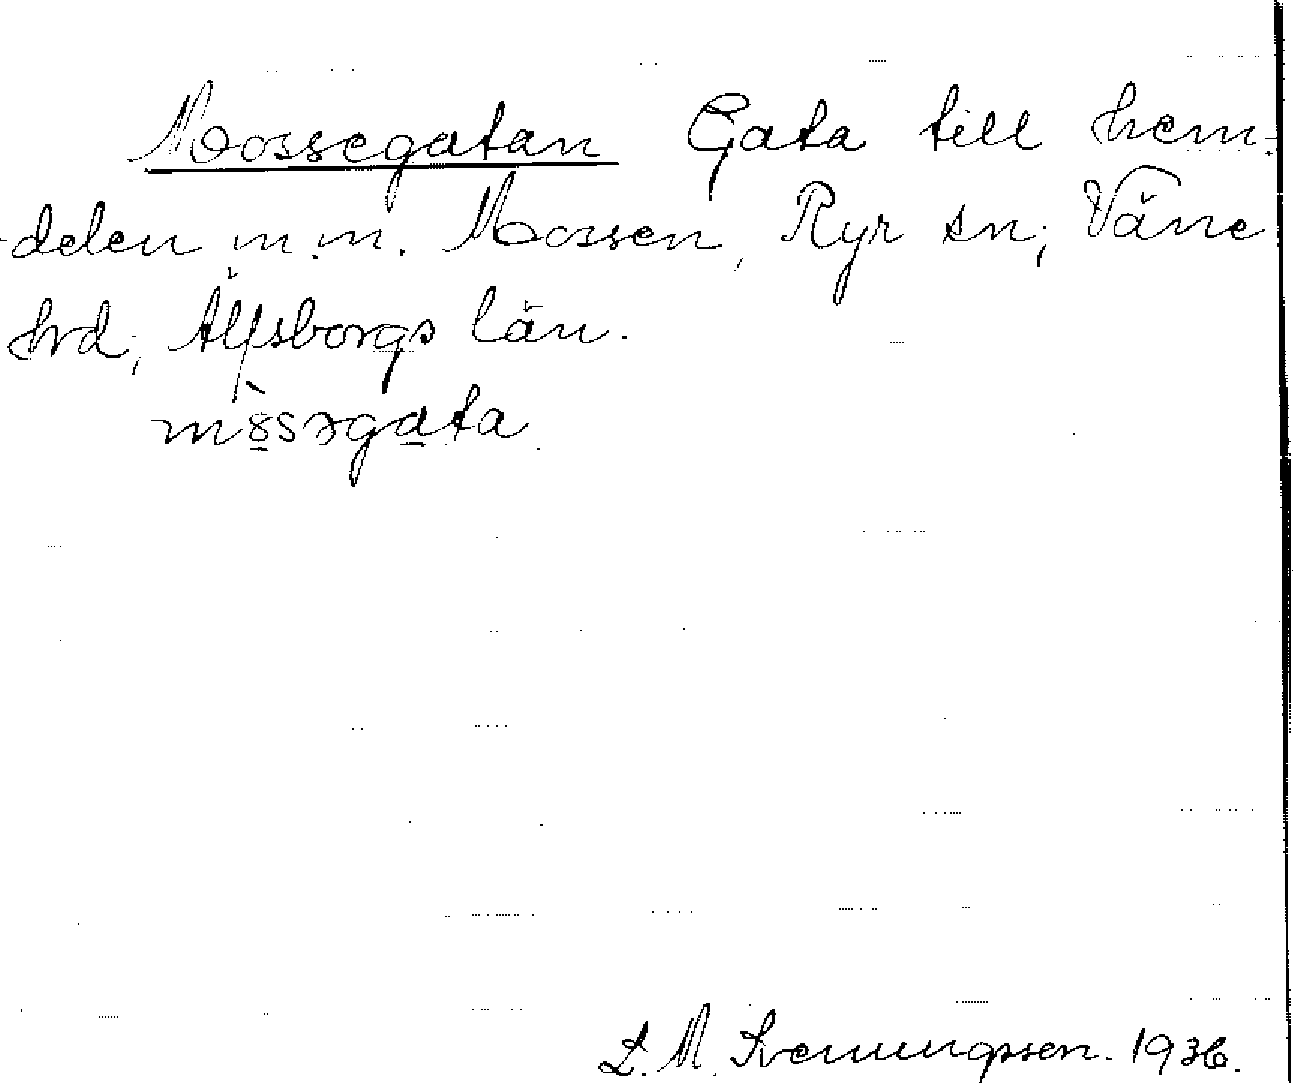 Mossegatan Gata till hem-
-delen m.m. Mossen, Ryr sn; Väne
hrd, Älfsborgs län.
mòssəgata.
L. M. Svenungsson. 1936.